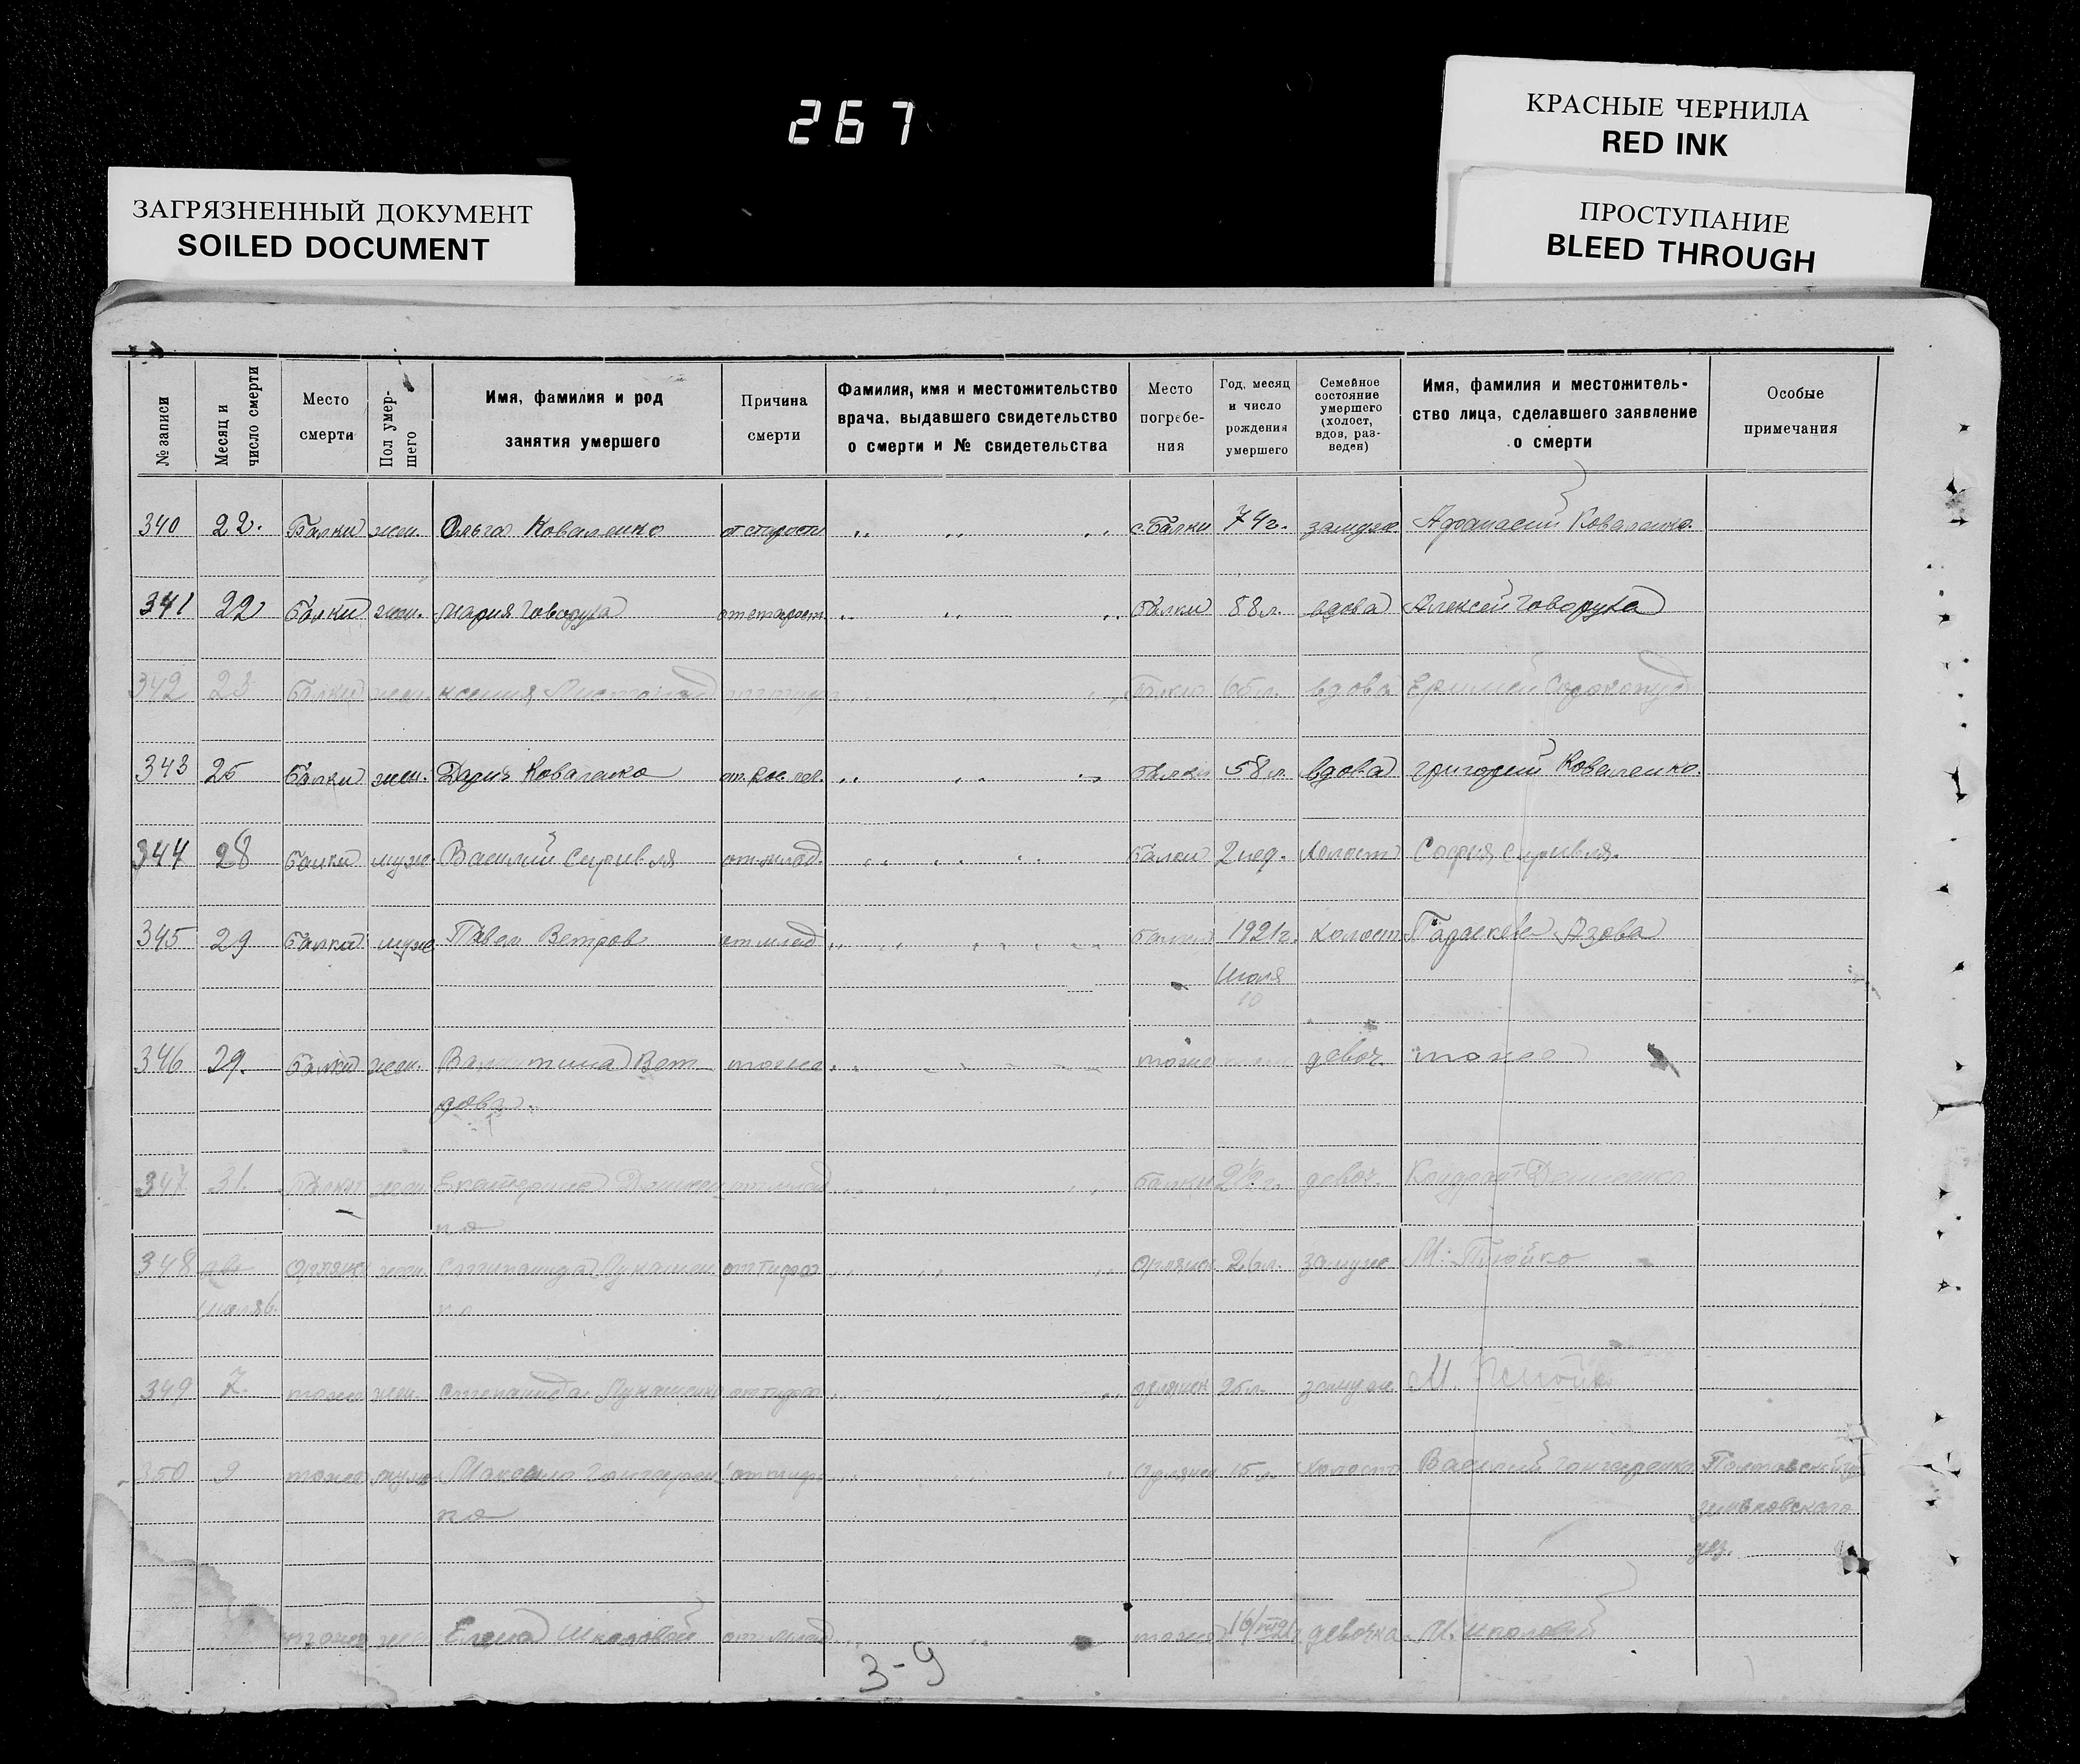 267
ЗАГРЯЗНЕННЫЙ ДОКУМЕНТ
SOILED DOCUMENT
КРАСНЫЕ ЧЕРНИЛА
RED INK
ПРОСТУПАНИЕ
BLEED THROUGH
№ записи
Месяц и число смерти
Место смерти
Пол умер-шего
Имя, фамилия и род занятия умершего
Причина смерти
Фамилия, имя и местожительство врача, выдавшего свидетельство о смерти и № свидетельства
Место погребе-ния
Год, месяц и число рождения умершего
Семейное состояние умершего (холост, вдов, раз-веден)
Имя, фамилия и местожитель-ство лица, сделавшего заявление о смерти
Особые примечания
340 22. Балки жен. Ольга Коваленко от старости " " " с. Балки 74 г. замуж. Афанасий Коваленко
341 22 Балки жен. Мария Говоруха от старост " " " Балки 88 л. вдова Алексей Говоруха
342 23 Балки жен. Ксения " " Балки 65 л. вдова
343 25 Балки жен. Дария Коваленко " " " Балки 58 л. вдова Григорий Коваленко.
344 28 Балки муж. Василий от млад. " " " Балки 2 нед. Холост София
345 29 Балки муж Павел Ветров от млад " Балки 1921 г. холост Параскева Азова
июля
10
346 29. Балки жен. Валентина Вет тоже " тоже девоч. тоже
рова.
347 31. Балки жен Екатерина от млад " " " Балки девоч. Кондрат Денисенко
ко
348 жен. Степанида Лукашен от тифа " " " орлянск 26 л. замуж М.
июля 6. ко
349 7. тоже жен. Степанида Лукашенко от тифа " " " орлянск 26 л. замуж М.
350 9 тоже муж Максим Гончарен от тифа " " орлянск 15 л. холост Василий Гончаренко Полтавской губ
ко зеньковского
уез.
тоже жен Елена Шкаловой от млад " " тоже девочка М.
3-9